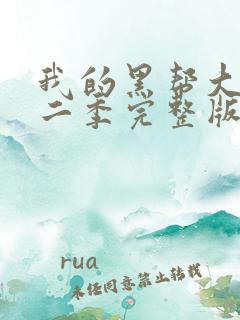 我的黑帮大
二季完整版
rua
未经同意禁止转载